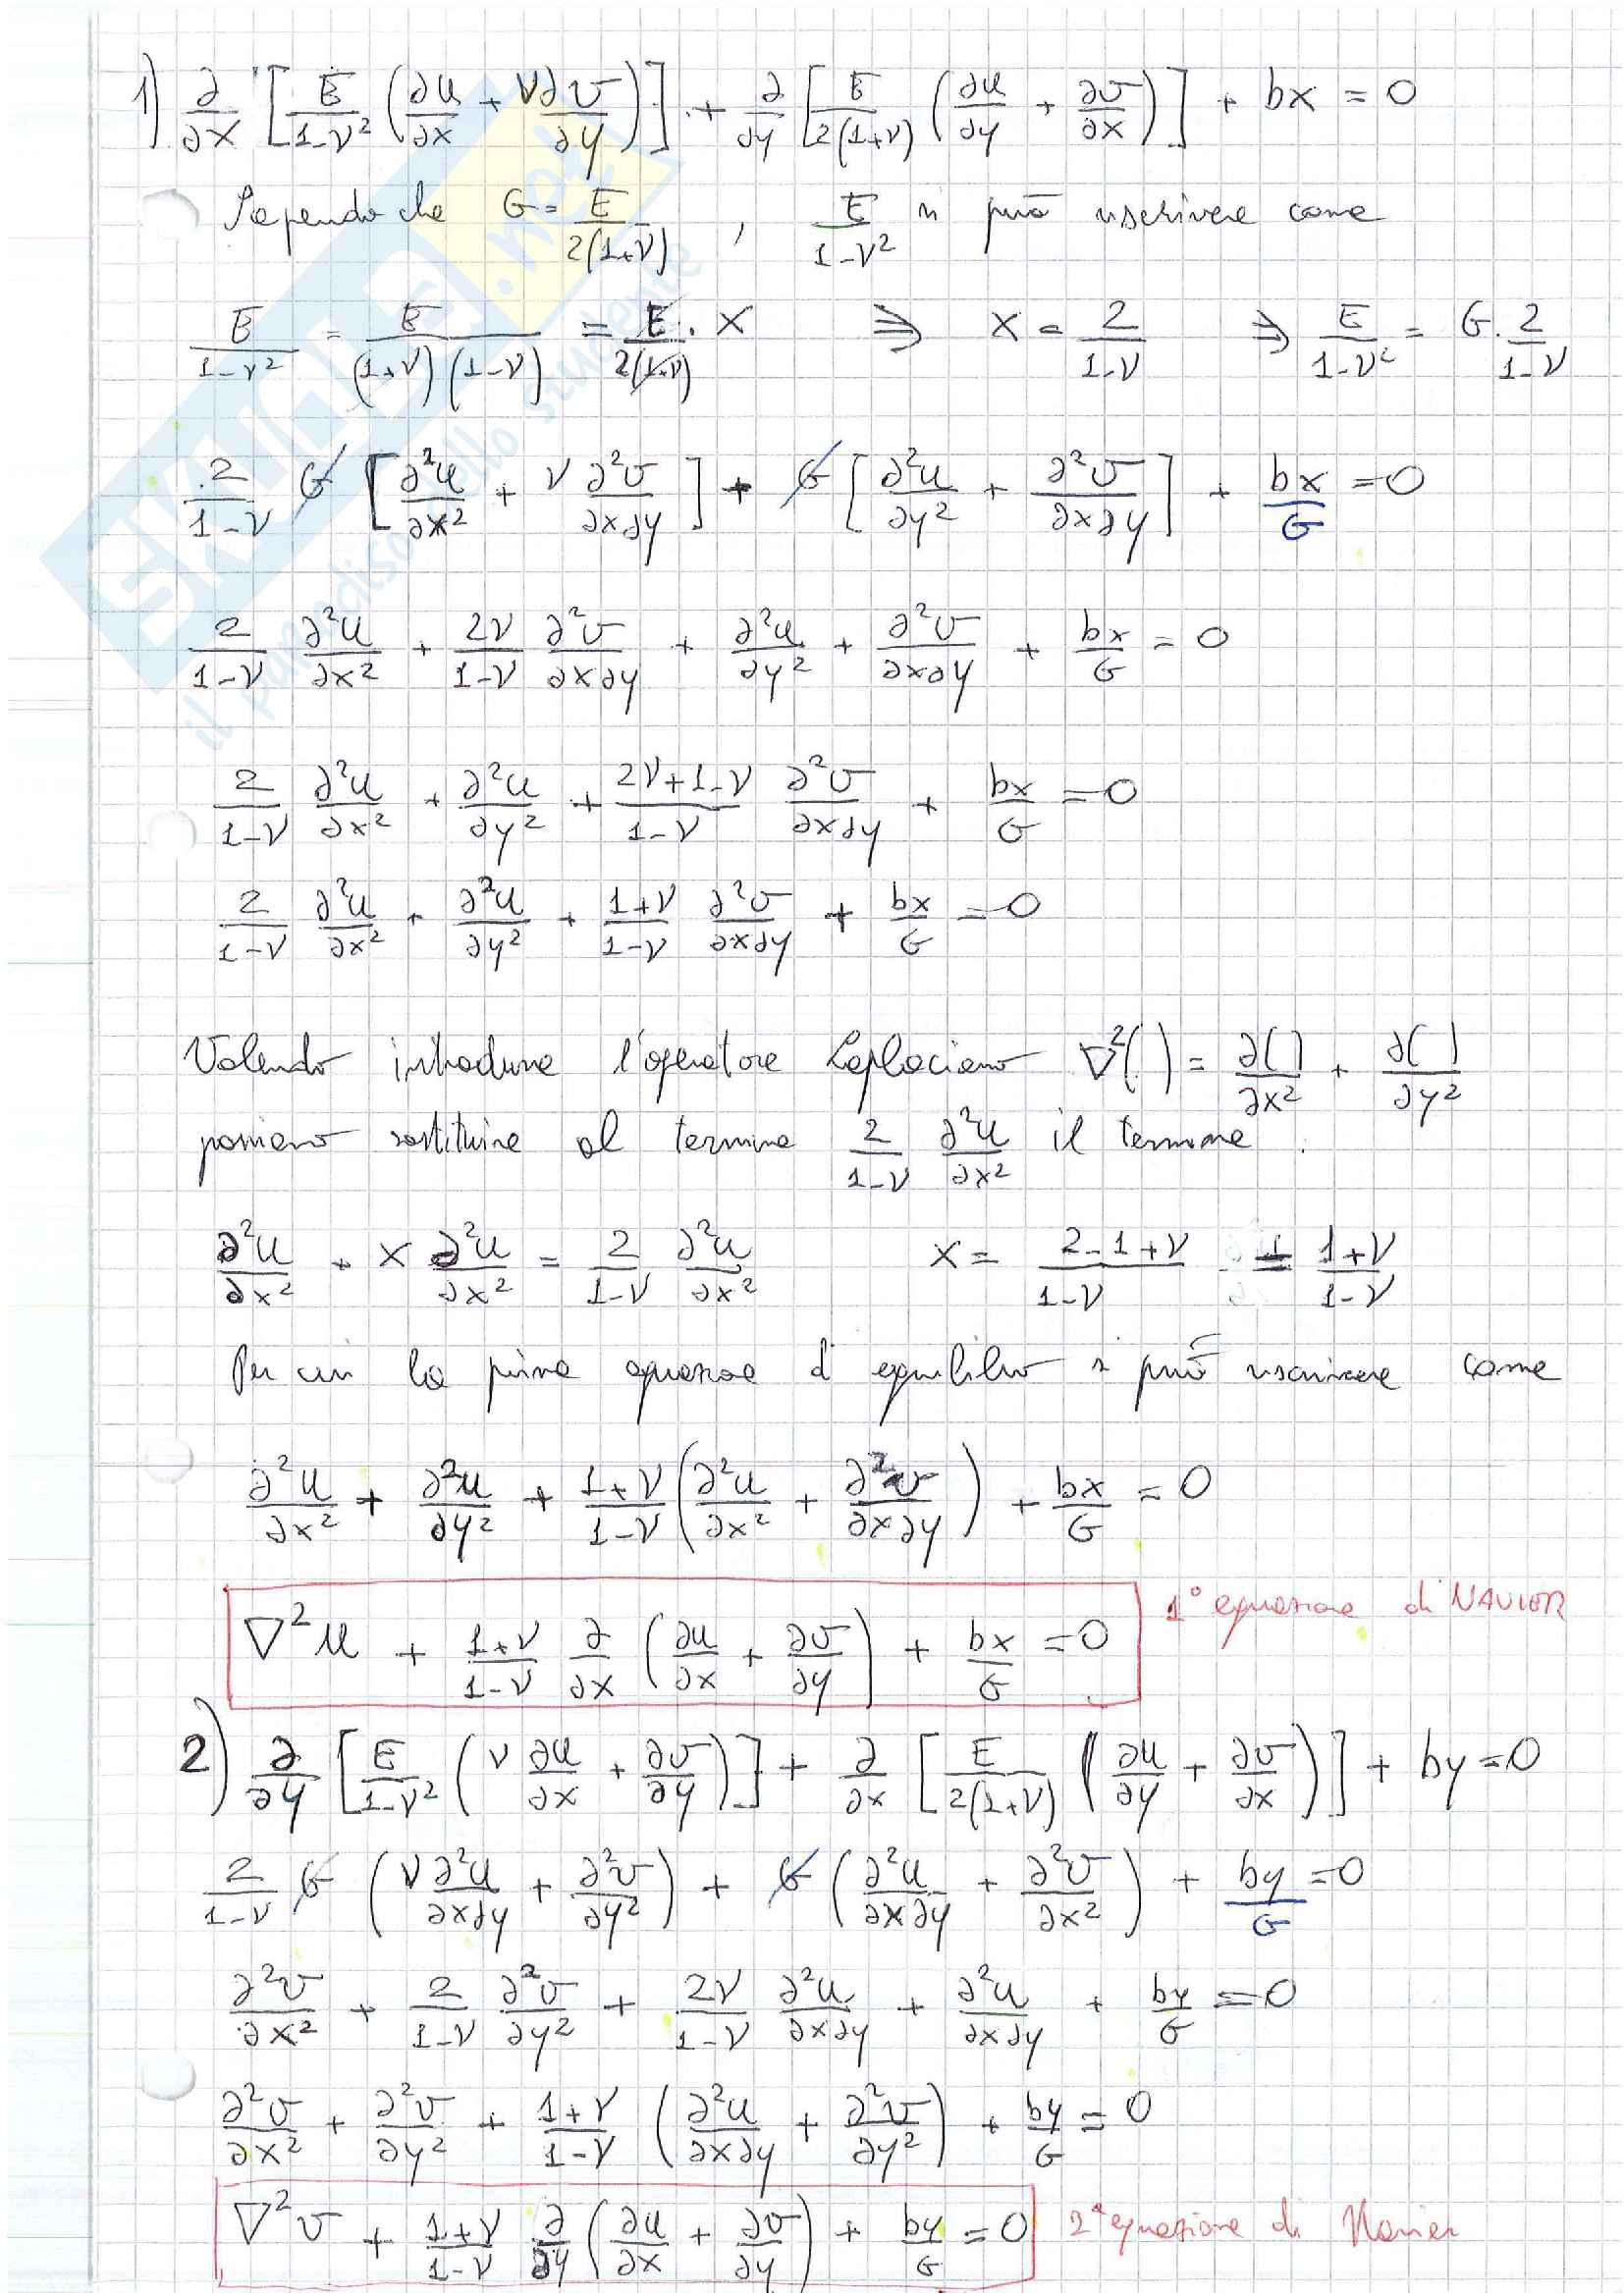 1) ∂/∂x [E/(1-ν²) (∂u/∂x + ν∂v/∂y)] + ∂/∂y [E/(2(1+ν)) (∂u/∂y + ∂v/∂x)] + bx = 0
Sapendo che G = E/(2(1+ν)) , E/(1-ν²) si può riscrivere come
E/(1-ν²) = E/((1+ν)(1-ν)) = E/(2(1+ν)) · X ⇒ X = 2/(1-ν) ⇒ E/(1-ν²) = G · 2/(1-ν)
2/(1-ν) G [∂²u/∂x² + ν ∂²v/∂x∂y] + G [∂²u/∂y² + ∂²v/∂x∂y] + bx/G = 0
2/(1-ν) ∂²u/∂x² + 2ν/(1-ν) ∂²v/∂x∂y + ∂²u/∂y² + ∂²v/∂x∂y + bx/G = 0
2/(1-ν) ∂²u/∂x² + ∂²u/∂y² + (2ν+1-ν)/(1-ν) ∂²v/∂x∂y + bx/G = 0
2/(1-ν) ∂²u/∂x² + ∂²u/∂y² + (1+ν)/(1-ν) ∂²v/∂x∂y + bx/G = 0
Volendo introdurre l'operatore Laplaciano ∇²( ) = ∂( )/∂x² + ∂( )/∂y²
possiamo sostituire al termine 2/(1-ν) ∂²u/∂x² il termine :
∂²u/∂x² + X ∂²u/∂x² = 2/(1-ν) ∂²u/∂x² X = (2-1+ν)/(1-ν) = (1+ν)/(1-ν)
Per cui la prima equazione d'equilibrio si può riscrivere come
∂²u/∂x² + ∂²u/∂y² + (1+ν)/(1-ν) (∂²u/∂x² + ∂²v/∂x∂y) + bx/G = 0
∇²u + (1+ν)/(1-ν) ∂/∂x (∂u/∂x + ∂v/∂y) + bx/G = 0 1° equazione di NAVIER
2) ∂/∂y [E/(1-ν²) (ν ∂u/∂x + ∂v/∂y)] + ∂/∂x [E/(2(1+ν)) (∂u/∂y + ∂v/∂x)] + by = 0
2/(1-ν) G (ν∂²u/∂x∂y + ∂²v/∂y²) + G (∂²u/∂x∂y + ∂²v/∂x²) + by/G = 0
∂²v/∂x² + 2/(1-ν) ∂²v/∂y² + 2ν/(1-ν) ∂²u/∂x∂y + ∂²u/∂x∂y + by/G = 0
∂²v/∂x² + ∂²v/∂y² + (1+ν)/(1-ν) (∂²u/∂x∂y + ∂²v/∂y²) + by/G = 0
∇²v + (1+ν)/(1-ν) ∂/∂y (∂u/∂x + ∂v/∂y) + by/G = 0 2ª equazione di Navier
SKUOLA.net
il paradiso dello studente